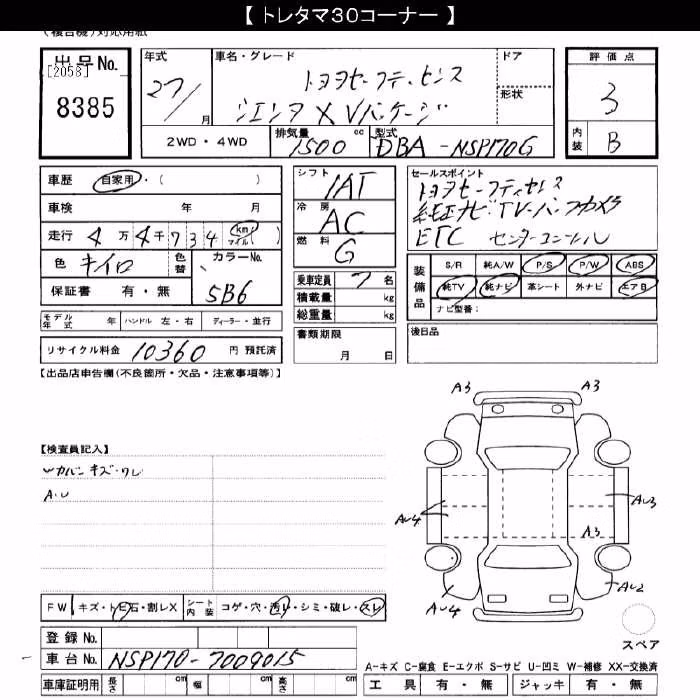 【 トレタマ30コーナー 】
(複合機)対応用紙
出品No. [2058] 8385
年式 27/ 月
車名・グレード トヨタセーフティセンス
シエンタ X Vパッケージ
ドア
形状
評価点 3
内装 B
2WD・4WD 排気量 1500 cc 型式 DBA-NSP170G
車歴 自家用・( )
車検 年 月
走行 4万4千734 km マイル( )
色 キイロ 色替 カラーNo. 5B6
保証書 有・無
シフト IAT
冷房 AC
燃料 G
乗車定員 7 名
積載量 kg
総重量 kg
セールスポイント
トヨタセーフティセンス
純正ナビ・TV・バックカメラ
ETC
装備品 S/R 純A/W P/S P/W ABS
純TV 純ナビ 革シート 外ナビ エアB
ナビ型番:
モデル年式 年 ハンドル 左・右 ディーラー・並行
リサイクル料金 10360 円 預託済
書類期限
月 日
後日品
【出品店申告欄(不良箇所・欠品・注意事項等)】
A3 A3
【検査員記入】
カバンキズ・ワレ
A・U
AU4 AU3
A3
AU4 AU2
FW キズ・トビ石・割レX シート内装 コゲ・穴・汚レ・シミ・破レ・スレ
スペア
登録No.
車台No. NSP170-7009015
車庫証明用 長さ cm 幅 cm 高さ cm
A-キズ C-腐食 E-エクボ S-サビ U-凹ミ W-補修 XX-交換済
工具 有・無 ジャッキ 有・無